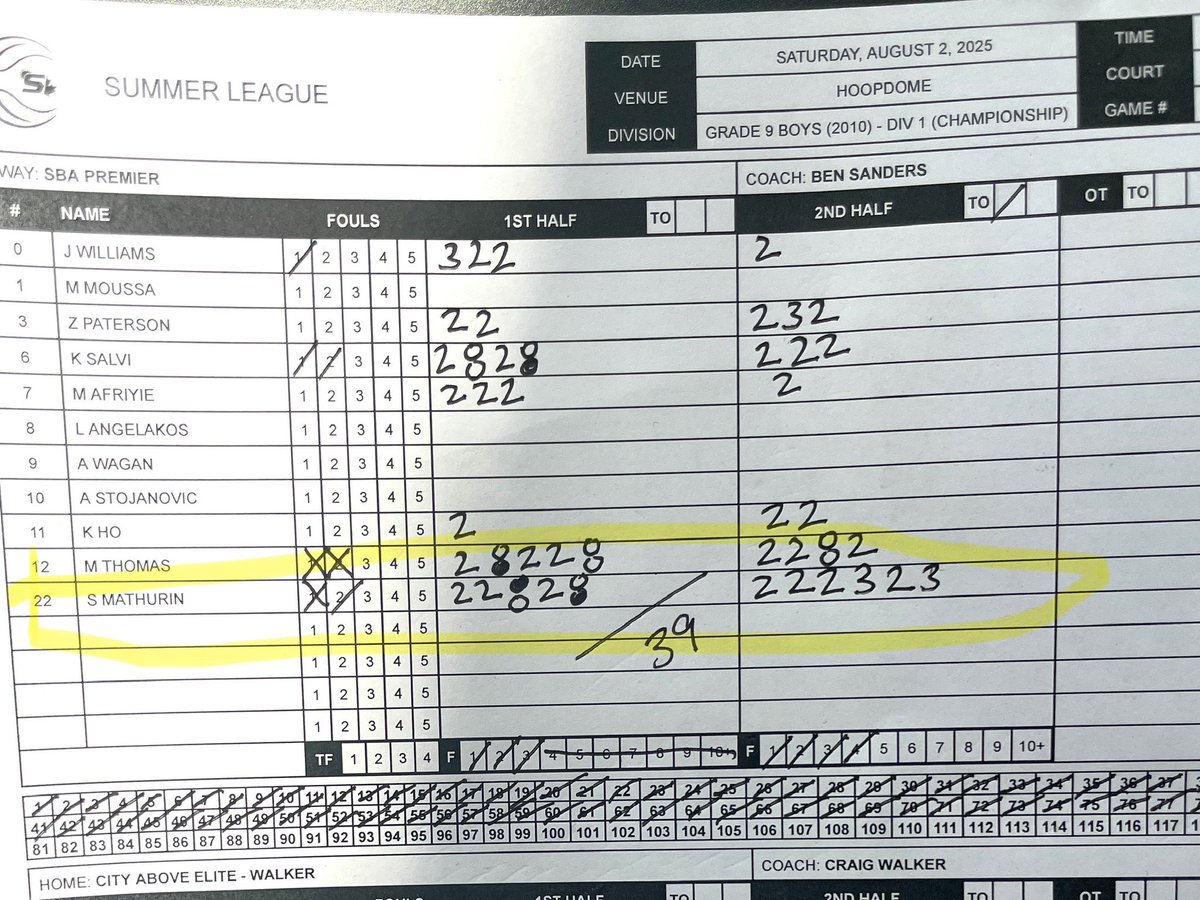 SUMMER LEAGUE
DATE SATURDAY, AUGUST 2, 2025 TIME
VENUE HOOPDOME COURT
DIVISION GRADE 9 BOYS (2010) - DIV 1 (CHAMPIONSHIP) GAME #
WAY: SBA PREMIER COACH: BEN SANDERS
# NAME FOULS 1ST HALF TO 2ND HALF TO OT TO
0 J WILLIAMS 1 2 3 4 5 322 2
1 M MOUSSA 1 2 3 4 5
3 Z PATERSON 1 2 3 4 5 22 232
6 K SALVI 1 2 3 4 5 2828 222
7 M AFRIYIE 1 2 3 4 5 222 2
8 L ANGELAKOS 1 2 3 4 5
9 A WAGAN 1 2 3 4 5
10 A STOJANOVIC 1 2 3 4 5
11 K HO 1 2 3 4 5 2 22
12 M THOMAS 1 2 3 4 5 28228 2282
22 S MATHURIN 1 2 3 4 5 22828 222323
1 2 3 4 5 39
1 2 3 4 5
1 2 3 4 5
1 2 3 4 5
TF 1 2 3 4 F 1 2 3 4 5 6 7 8 9 10+ F 1 2 3 4 5 6 7 8 9 10+
1 2 3 4 5 6 7 8 9 10 11 12 13 14 15 16 17 18 19 20 21 22 23 24 25 26 27 28 29 30 31 32 33 34 35 36 37
41 42 43 44 45 46 47 48 49 50 51 52 53 54 55 56 57 58 59 60 61 62 63 64 65 66 67 68 69 70 71 72 73 74 75 76 77
81 82 83 84 85 86 87 88 89 90 91 92 93 94 95 96 97 98 99 100 101 102 103 104 105 106 107 108 109 110 111 112 113 114 115 116 117
HOME: CITY ABOVE ELITE - WALKER COACH: CRAIG WALKER
FOULS 1ST HALF TO 2ND HALF TO OT TO